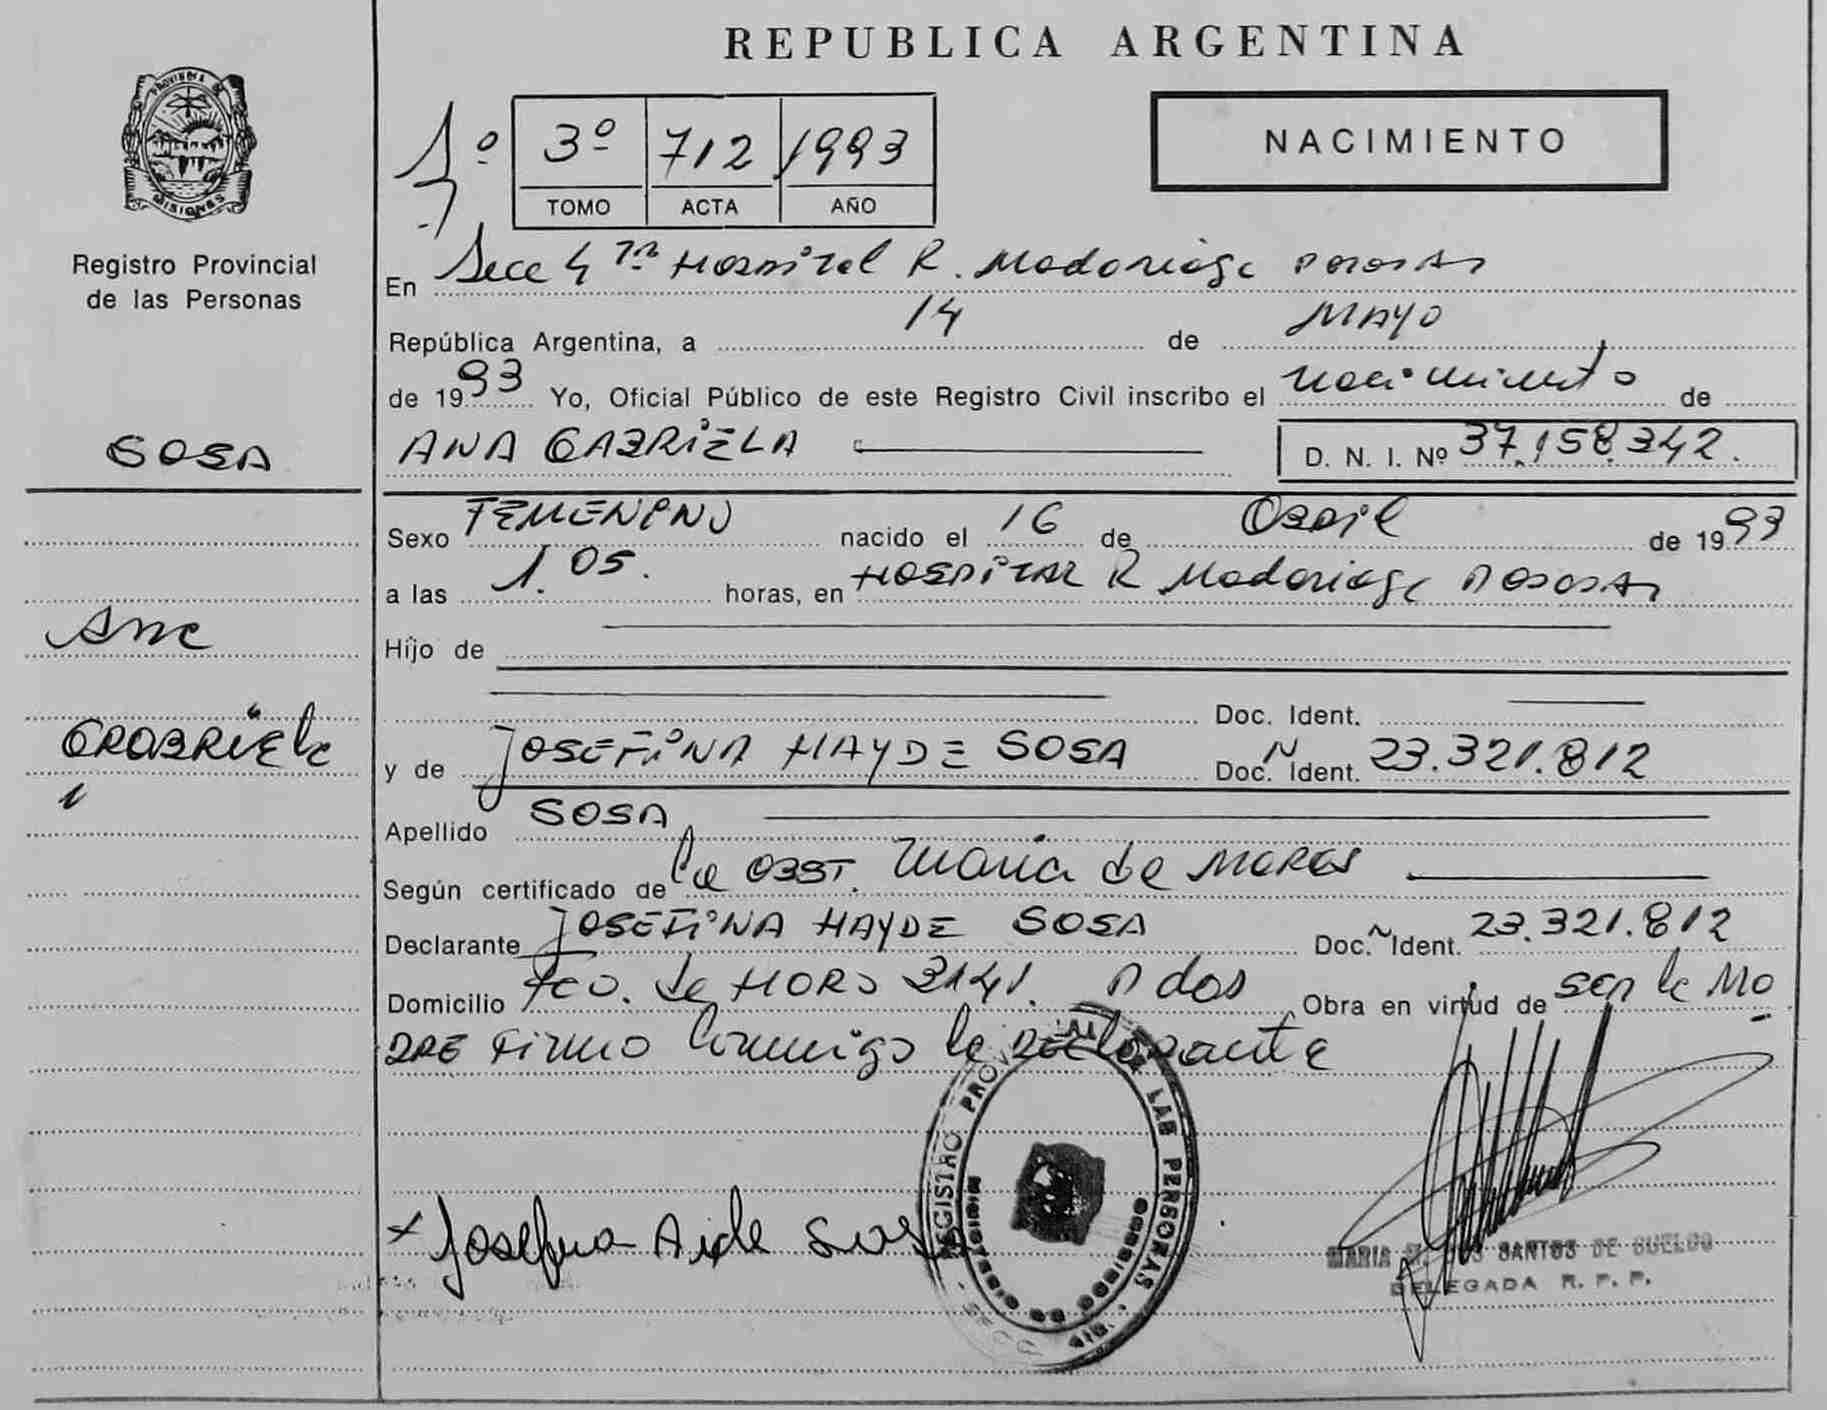 REPUBLICA ARGENTINA
PROVINCIA DE
MISIONES
Registro Provincial
de las Personas
1º
3º 712 1993
TOMO ACTA AÑO
NACIMIENTO
En Secc 4ta Hospital R. Madariaga Posadas
República Argentina, a 14 de MAYO
de 1993 Yo, Oficial Público de este Registro Civil inscribo el nacimiento de
SOSA
ANA GABRIELA D. N. I. Nº 37.158.342.
Sexo FEMENINO nacido el 16 de Abril de 1993
a las 1.05. horas, en HOSPITAL R Madariaga Posadas
Ana
Hijo de
Doc. Ident.
GRABRIELa
y de JOSEFINA HAYDE SOSA Doc. Ident. 23.321.812
Apellido SOSA
Según certificado de la OBST. Maria de
Declarante JOSEFINA HAYDE SOSA Doc. Ident. 23.321.812
Domicilio Fco. de HARO 3141. Pdas Obra en virtud de ser la MA
DRE Firma conmigo la DEClarante
REGISTRO PROVINCIAL DE LAS PERSONAS
Josefina Aide Sosa
MARIA SANTOS DE SUELDO
DELEGADA R. P. P.